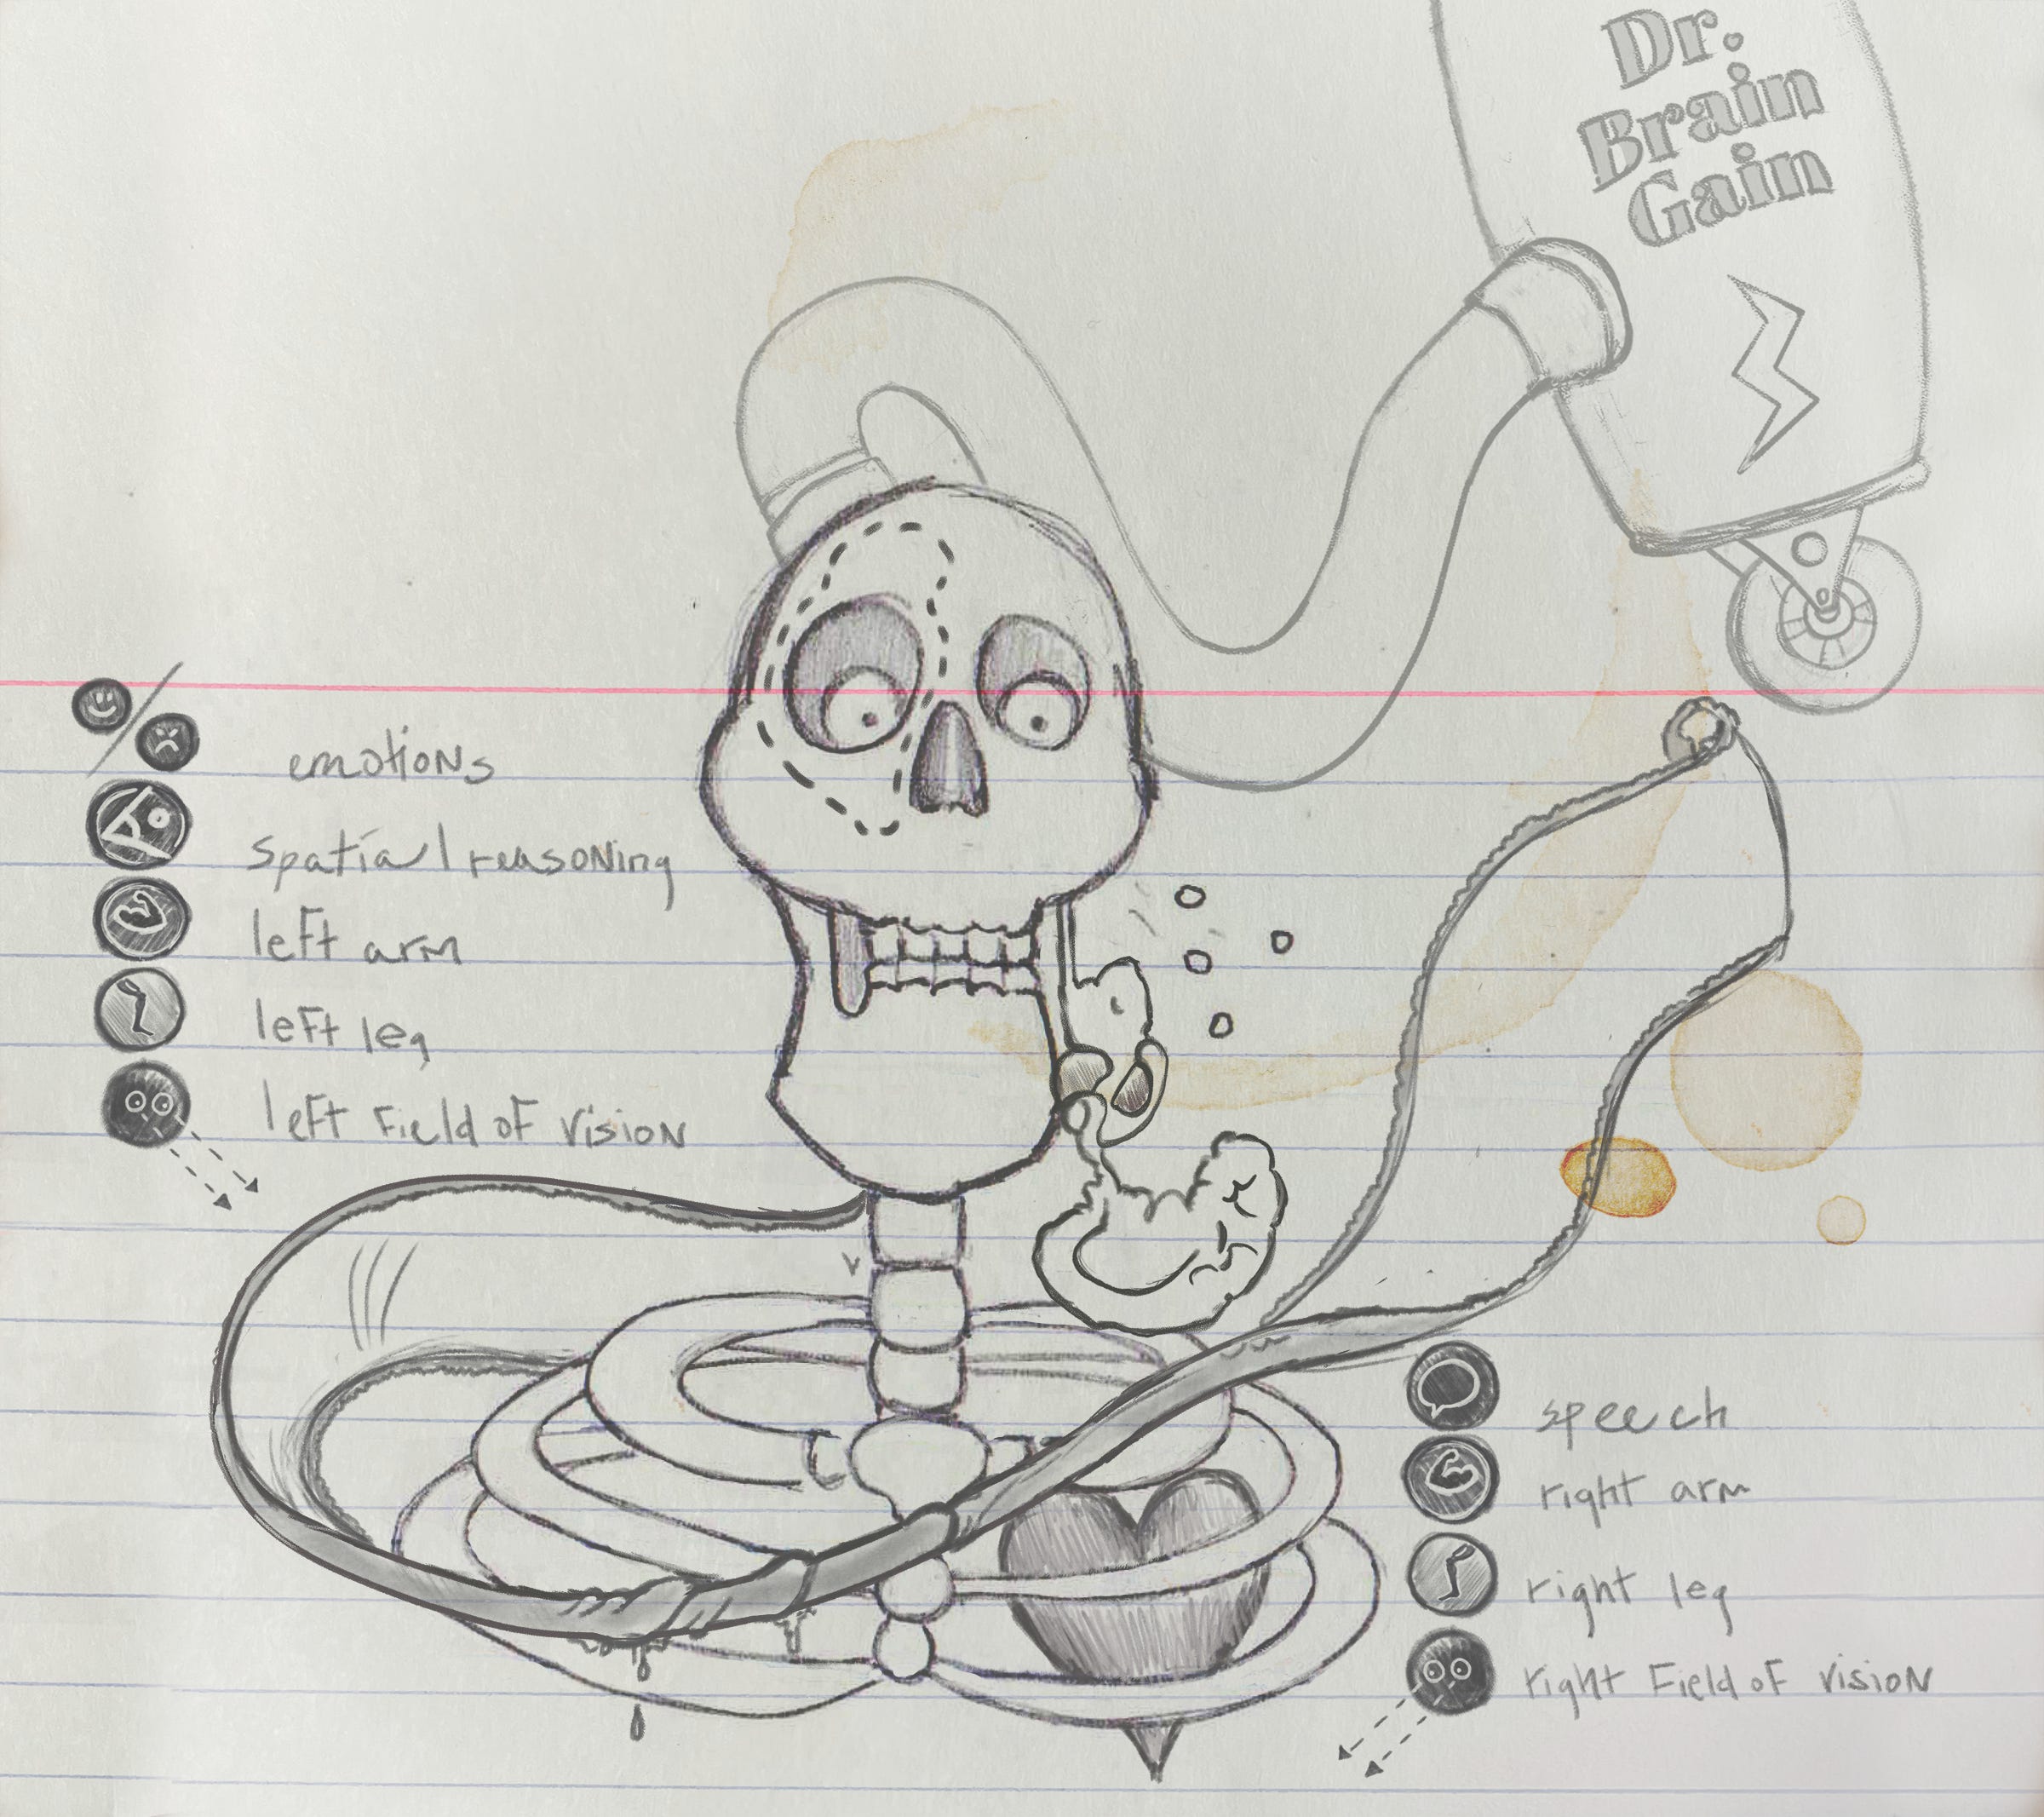 Dr.
Brain
Gain
emotions
spatial reasoning
left arm
left leg
left field of vision
speech
right arm
right leg
right field of vision